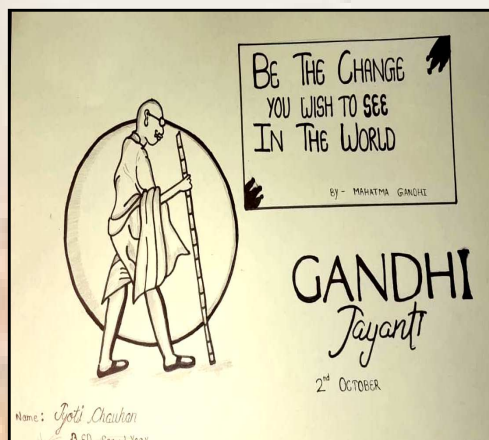 BE THE CHANGE
YOU WISH TO SEE
IN THE WORLD
BY - MAHATMA GANDHI
GANDHI
Jayanti
2nd OCTOBER
Name: Jyoti Chauhan
B.ED